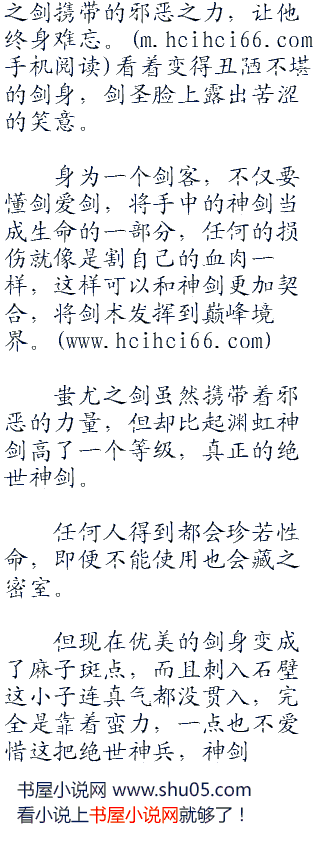 之剑携带的邪恶之力，让他
终身难忘。(m.hcihci66.com
手机阅读)看着变得丑陋不堪
的剑身，剑圣脸上露出苦涩
的笑意。
身为一个剑客，不仅要
懂剑爱剑，将手中的神剑当
成生命的一部分，任何的损
伤就像是割自己的血肉一
样，这样可以和神剑更加契
合，将剑术发挥到巅峰境
界。(www.hcihci66.com)
蚩尤之剑虽然携带着邪
恶的力量，但却比起渊虹神
剑高了一个等级，真正的绝
世神剑。
任何人得到都会珍若性
命，即便不能使用也会藏之
密室。
但现在优美的剑身变成
了麻子斑点，而且刺入石壁
这小子连真气都没贯入，完
全是靠着蛮力，一点也不爱
惜这把绝世神兵，神剑
书屋小说网 www.shu05.com
看小说上书屋小说网就够了！